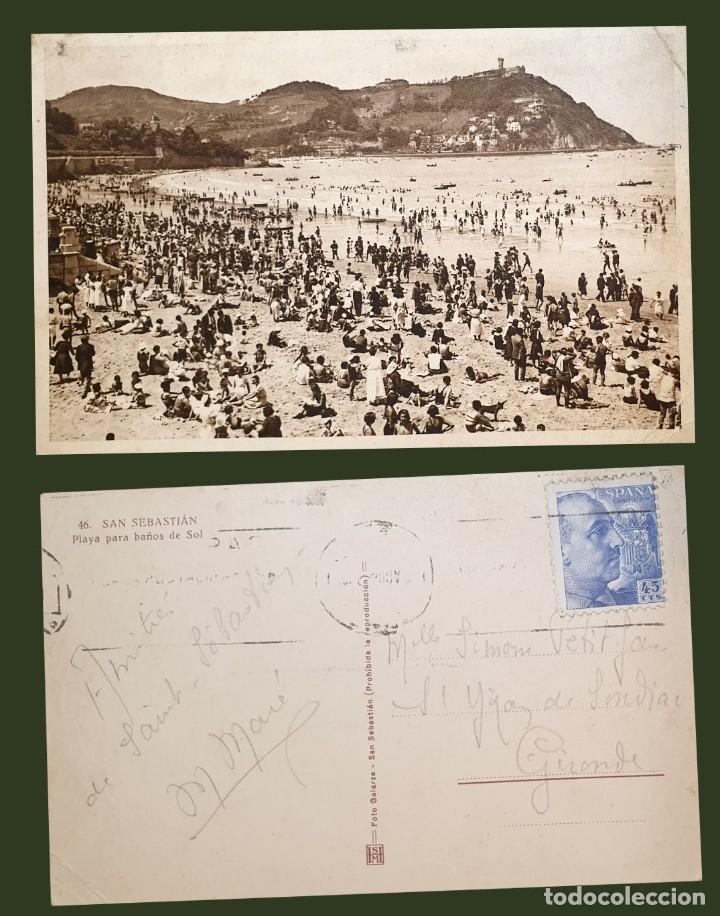 46. SAN SEBASTIÁN
Playa para baños de Sol
ESPAÑA
CORREOS
45
CTS
Amitiés
de Saint Sébastien
M Maré
Foto Galarza - San Sebastián (Prohibida la reproducción)
Mlle Simone Petit Jean
St Yzan de Soudiac
Gironde
todocoleccion